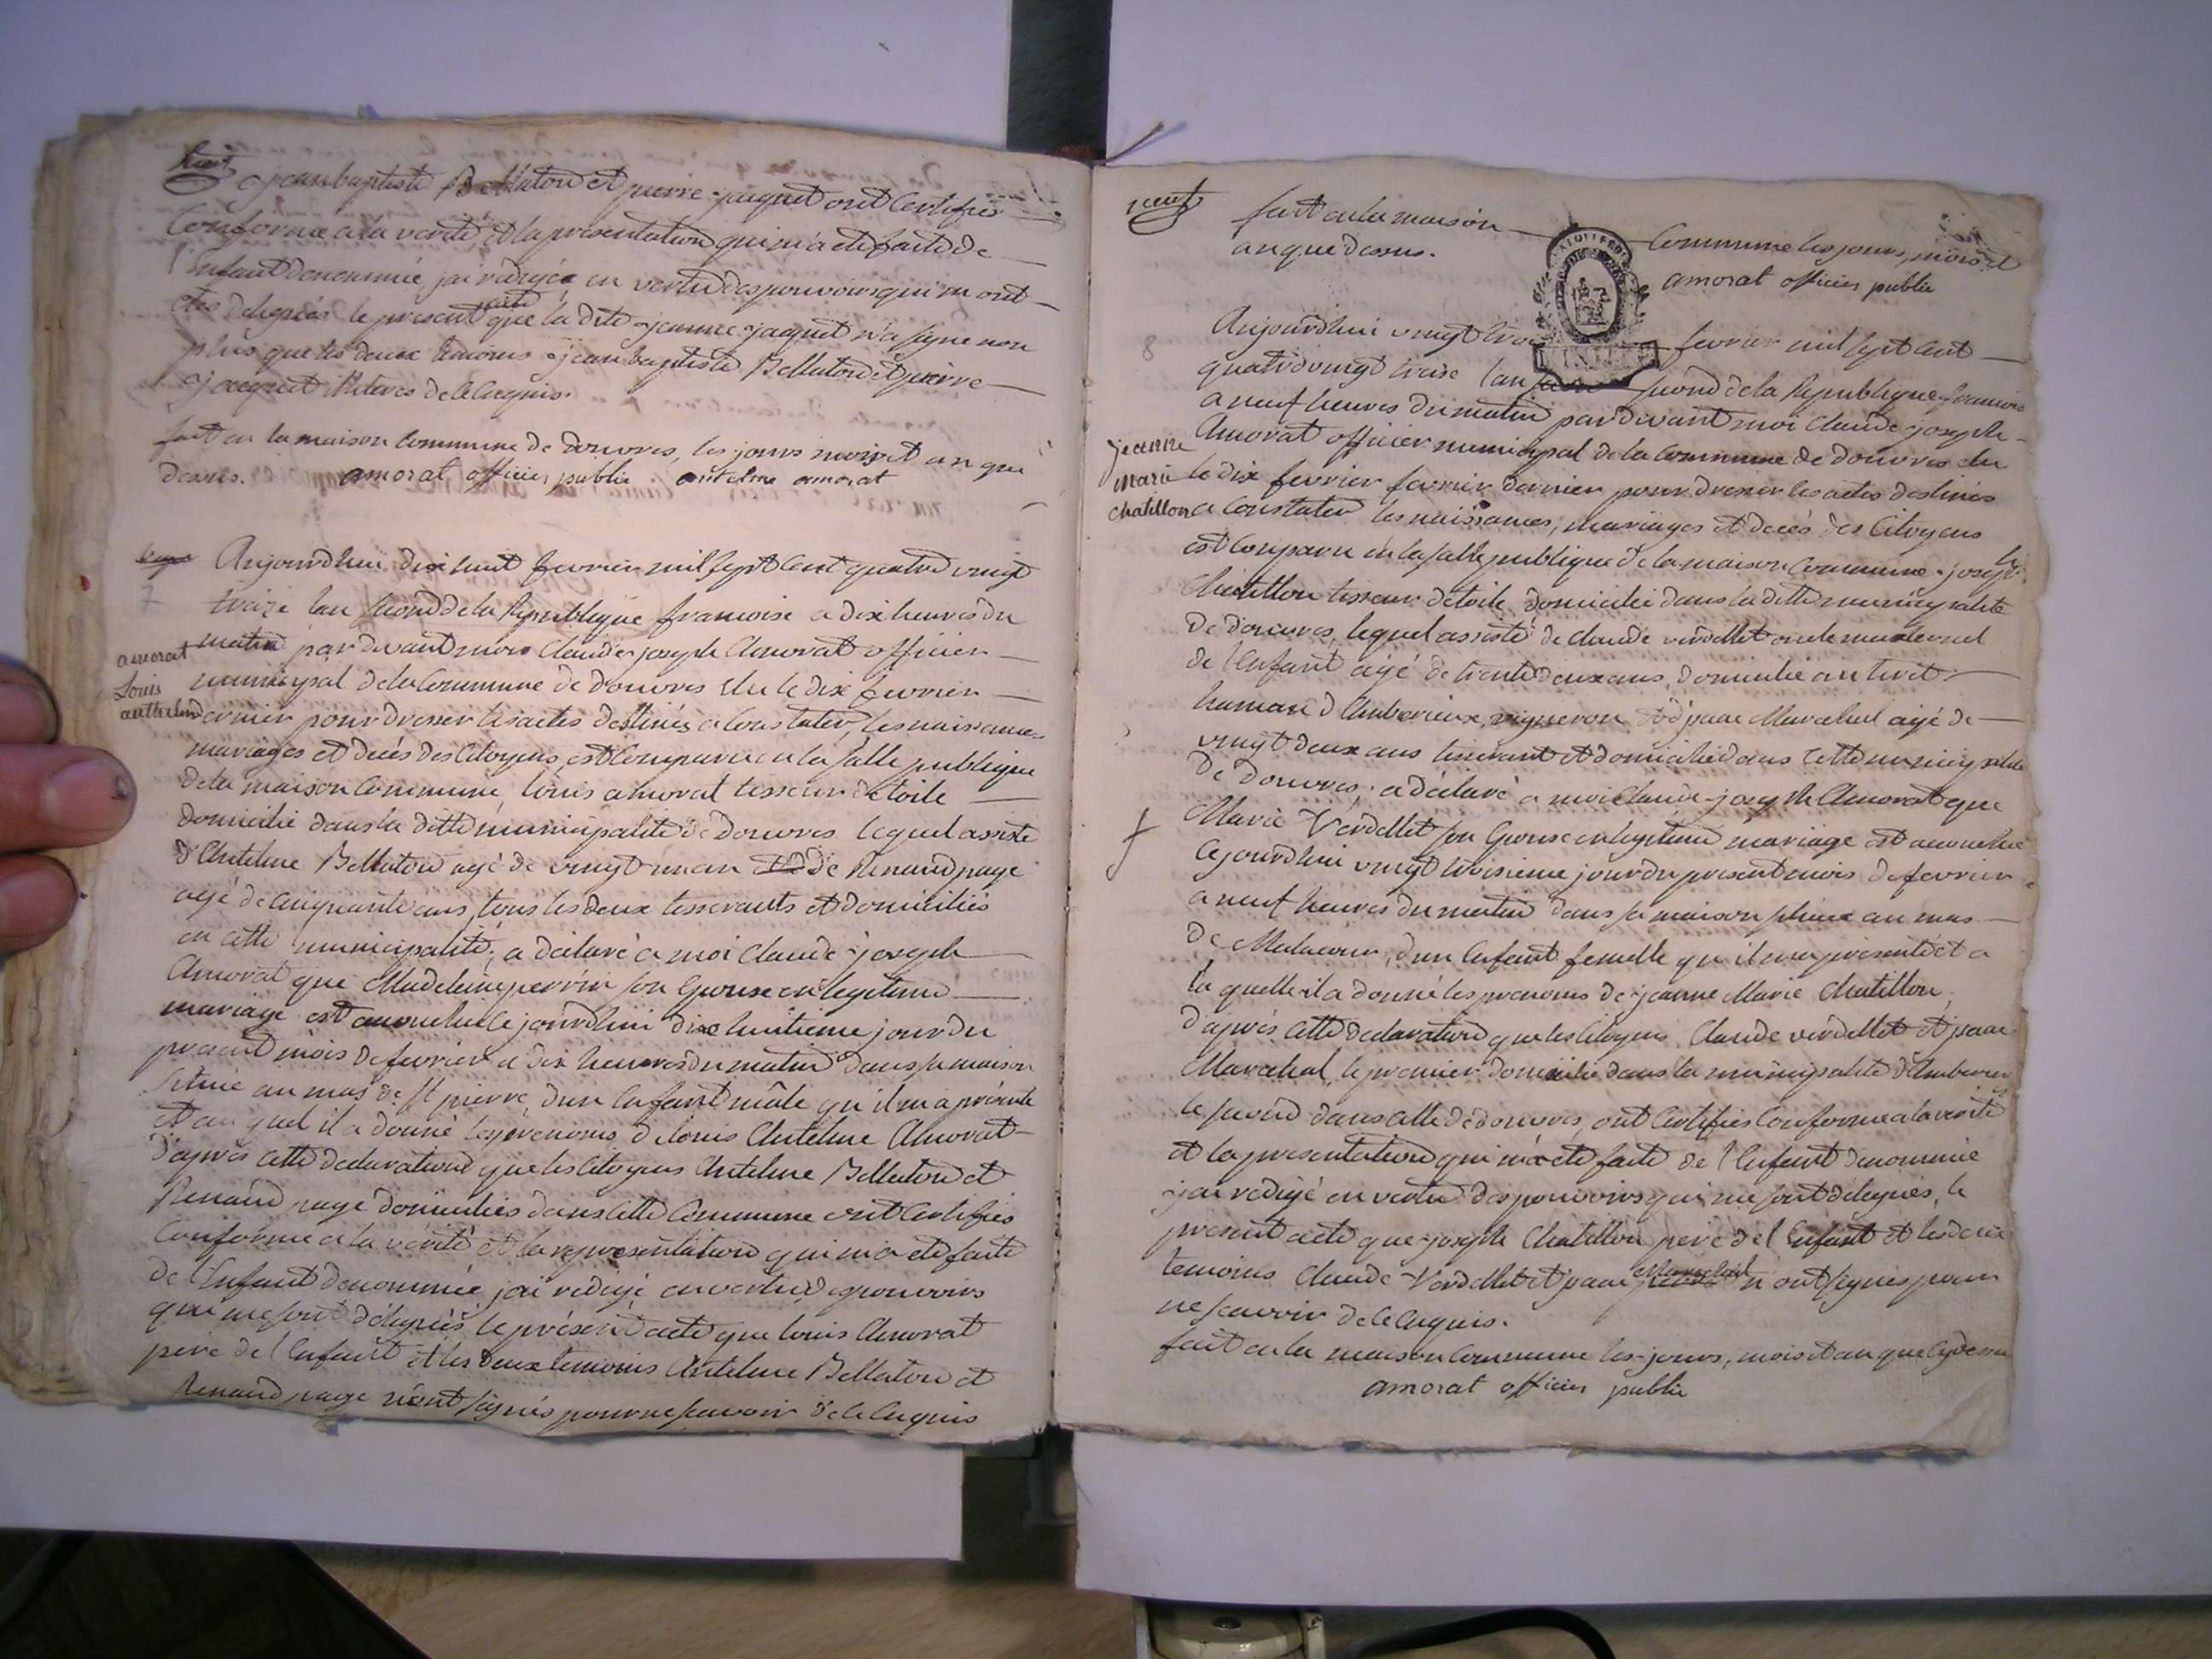 huit
jean baptiste Bellaton et pierre jaquet ont Certifiés
Conforme a la verité, et la presentation qui m'a eté faite de
l'Enfant denommée, jai redigée en vertu des pouvoirs qui m'ont
etés delegués le present acte que la dite jeanne jaquet n'a signé non
plus que les deux temoins jean baptiste Bellaton et pierre
jacquet illiteres de ce Enquis.
fait en la maison Commune de douvres, les jours mois et an que
dessus. amorat officier public antelme amorat
7
Aujourdhui dix huit fevrier mil sept Cent quatre vingt
traize lan second de la Republique francoise a dix heures du
matin par devant mois Claude joseph Amorat officier
amorat
Louis
anthelme
municipal de la Commune de douvres elu le dix fevrier
dernier pour dresser les actes destinés a Constater, les naissances
mariages et decés des Citoyens, est Comparu en la salle publique
de la maison Commune, louis amorat tisseur de toile
domicilié dans la ditte municipalité de Douvres lequel assisté
d'Antelme Bellaton agé de vingt un an et de Renaud page
agé de Cinquante ans, tous les deux tisserants et domiciliés
en cette municipalité, a déclaré a moi Claude joseph
Amorat que Madeleine perrin son Epouse en legitime
mariage est accouchée Ce jourdhui dix huitieme jour du
present mois de fevrier a dix heures du matin dans sa maison
située au mas de St pierre, d'un Enfant mâle qu'il m'a presenté
et au quel il a donné les prenoms de louis Antelme Amorat
d'aprés cette declaration que les Citoyens Antelme Bellaton et
Renaud page domiciliés dans cette Commune ont Certifiés
Conforme a la vérité et la representation qui m'a eté faite
de l'Enfant denommée, jai redigé en vertu des pouvoirs
qui me sont délegués le présent acte que louis Amorat
pere de l'Enfant et les deux temoins Antelme Bellaton et
Renaud page n'ont signés pour ne scavoir de ce Enquis
neuf
fait en la maison Commune les jours, mois et
an que dessus. amorat officier public
8
Aujourdhui vingt trois fevrier mil sept Cent
quatre vingt traize lan second de la Republique francoise
a neuf heures du matin par devant moi Claude joseph
Amorat officier municipal de la Commune de douvres elu
jeanne
marie
chatillon
le dix fevrier fevrier dernier pour dresser les actes destinés
a Constater les naissances, mariages et decés des Citoyens
est Comparu en la salle publique de la maison Commune joseph
Chatillon tisseur de toile, domicilié dans la ditte municipalité
de douvres, lequel assisté de claude verdellet oncle maternel
de l'Enfant agé de trente deux ans, domicilié au tiret
hamau d'Amberieux, vigneron et d'isaac Marechal agé de
vingt deux ans tisserant et domicilié dans Cette municipalité
de Douvres, a déclaré a moi Claude joseph Amorat que
Marie Verdellet son Epouse en legitime mariage est accouchée
Ce jourdhui vingt troisieme jour du present mois de fevrier
a neuf heures du matin dans sa maison située au mas
de Malacour, d'un Enfant femelle qu'il m'a presenté et a
la quelle il a donné les prenoms de jeanne Marie Chatillon,
d'aprés cette declaration que les Citoyens Claude verdellet et isaac
Marechal, le premier domicilié dans la municipalité d'Amberieux
le second dans celle de douvres, ont Certifiés Conforme a la verité
et la presentation qui m'a eté faite de l'Enfant denommée
jai redigé en vertu des pouvoirs qui me sont délegués, le
present acte que joseph Chatillon pere de l'Enfant et les deux
temoins Claude Verdellet et isaac Marechal n'ont signés pour
ne scavoir de ce Enquis.
fait en la maison Commune les jours, mois et an que Cydessus
amorat officier public